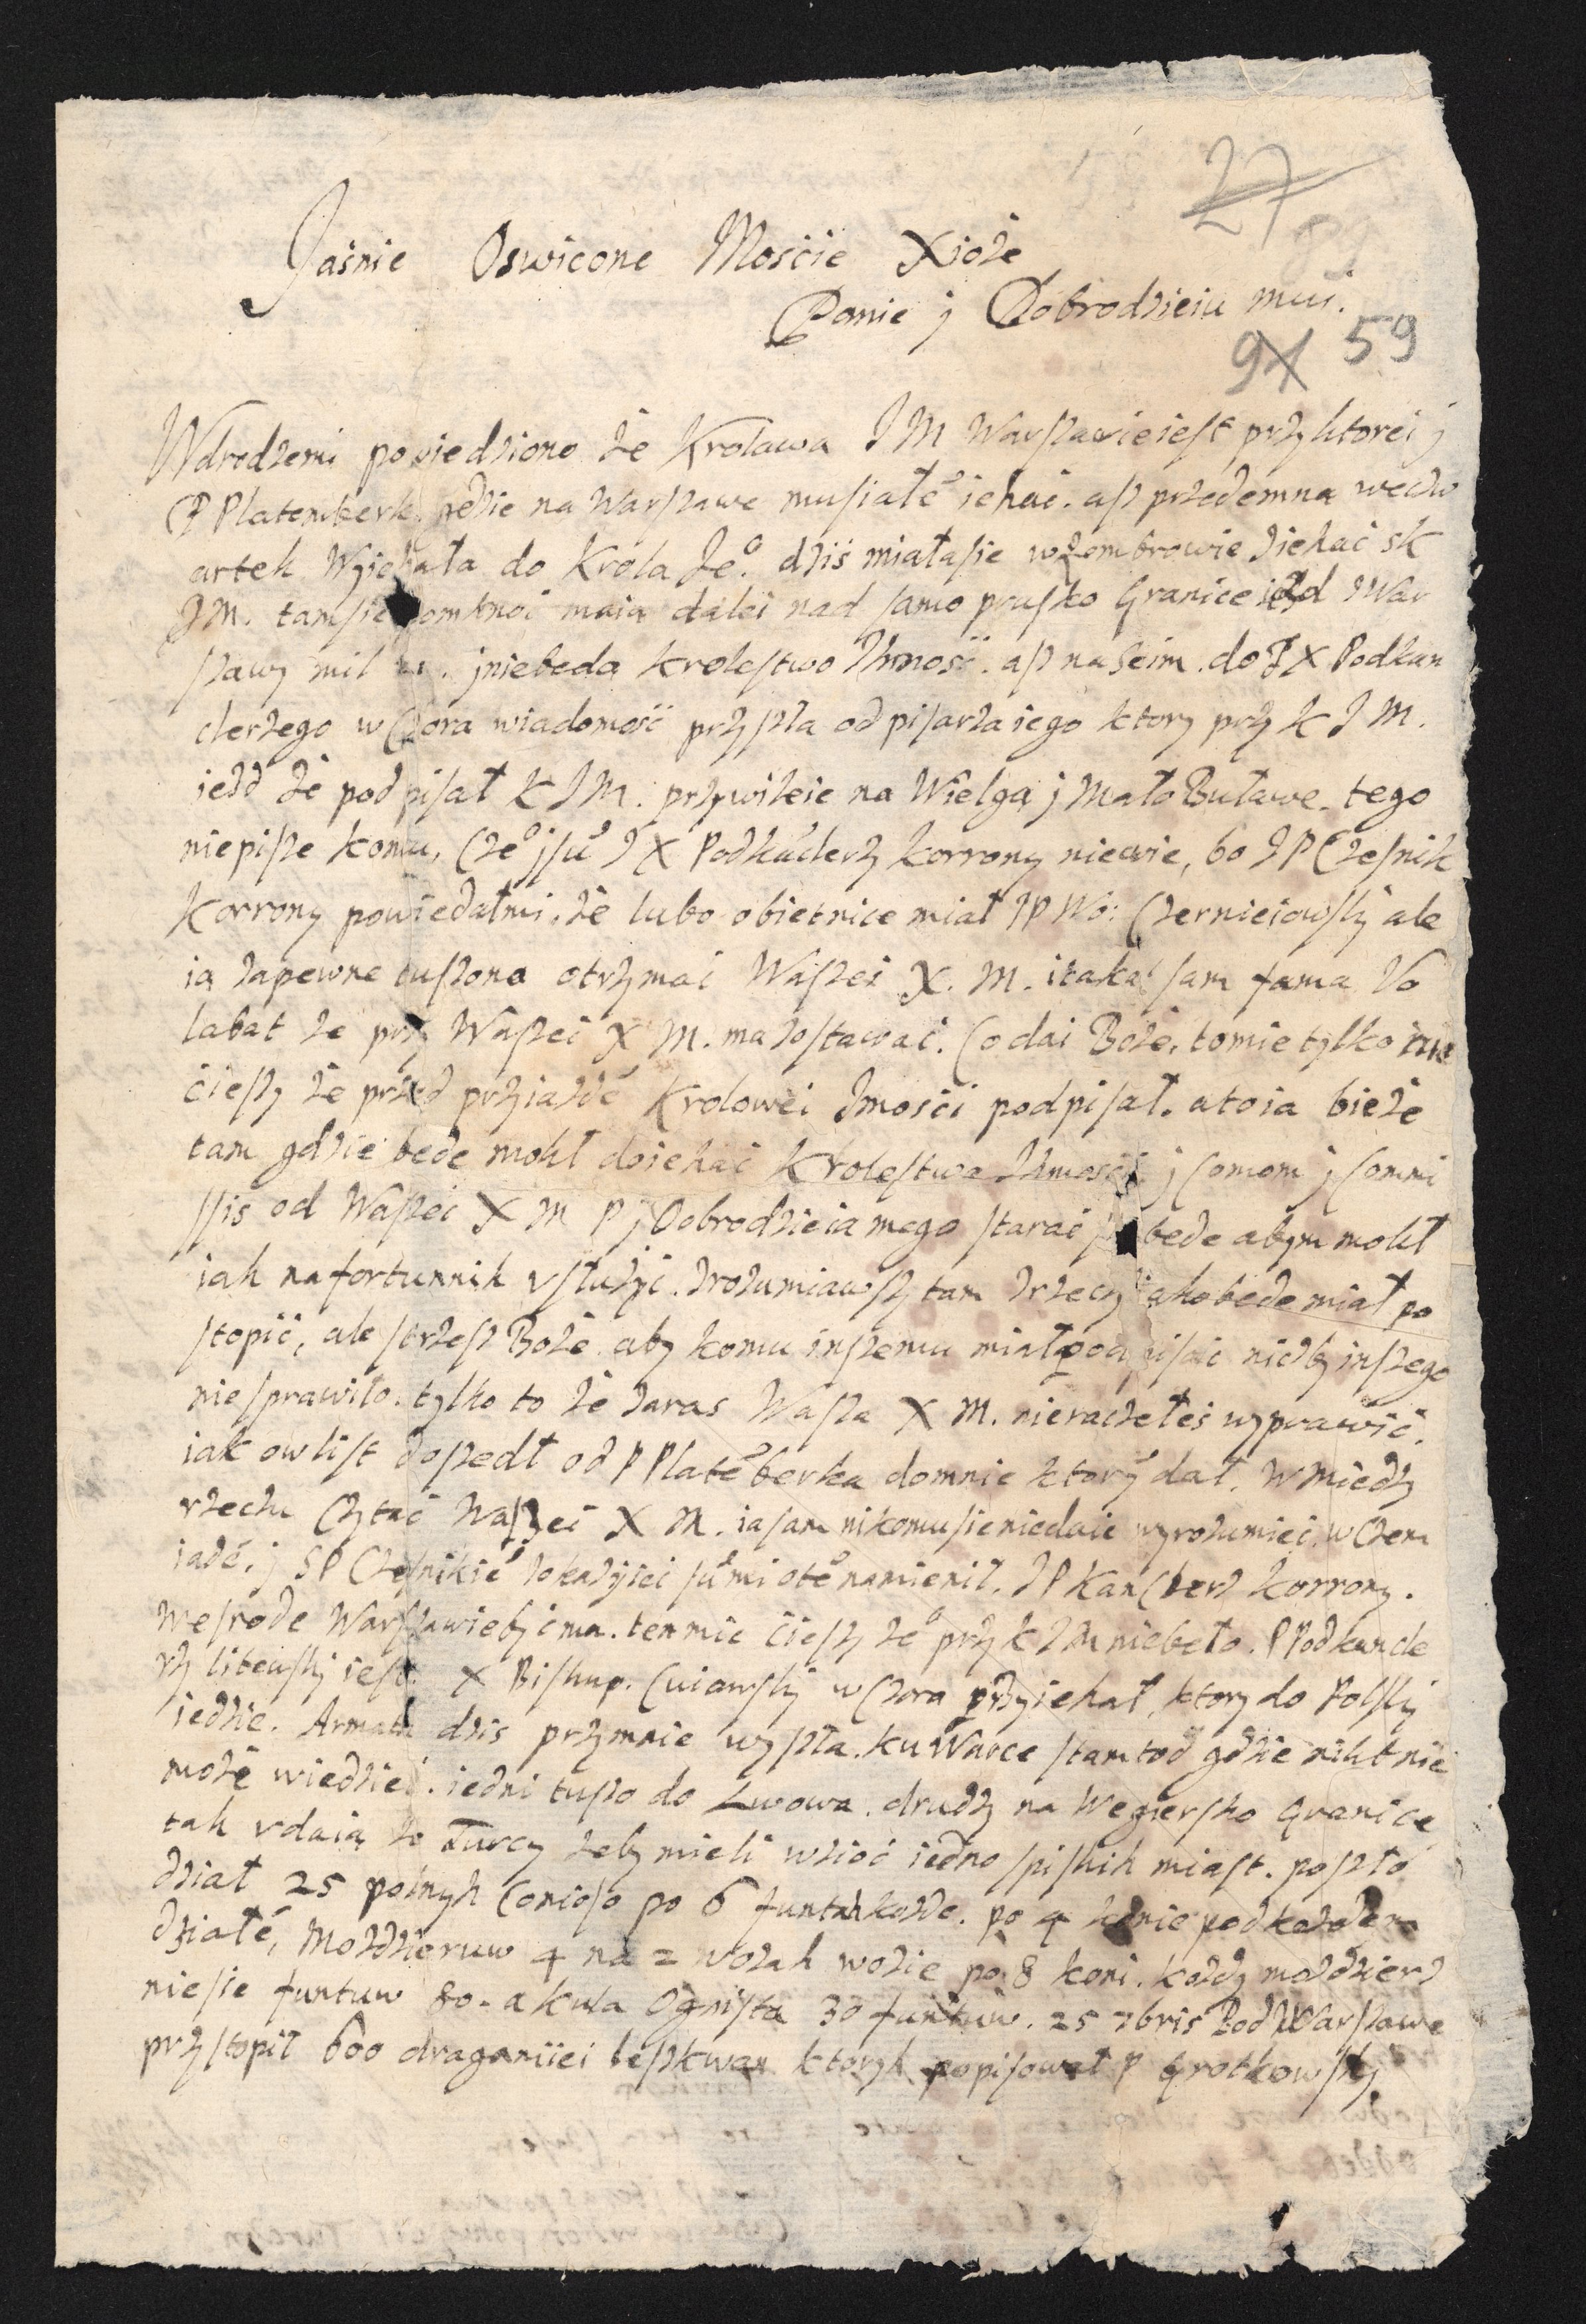 27
Jaśnie Oswicone Mosćie Xioże
Panie j Dobrodzieiu mui.
9X 59
Wdrodzemi powiedziono że Krolawa JM Warszawieiest przyktorei j
P Platemberk. gdzie na Warszawe musiałe iehać. asz przedemna weczw
artek Wyiehała do Krola Je°. dziś miałasie wzombrowie ziehać sk
JM. tamsie pomknoć maia dalei nad samo prusko Granice od War
szawy mil jniebeda krolestwo Ihmość. asz na Seim. do JX Podkan
clerzego wczora wiadomość przyszła od pisarza iego ktory przy k J M.
iezd że podpisał K J M. przywileie na Wielga j Mało Buławe. tego
niepisze komu, JX Podkaclerz Korrony niewie, bo JP Czesnik
Korrony powiedałmi. że lubo obietnice miał JP Wo: Czernieiowsky ale
ia zapewne tuszono otrzymać Waszei X. M. sam fama Vo
labat że przy Waszei X M. ma zostawać. Co dai Boże. tomie tylko nie
ćieszy że przed przyiazde Krolowei Jmosći podpisał. atoia bieże
tam gdzie bede mohł doiehać Krolestwa Ihmość j comom j commi
ssis od Waszei X M P j Dobrodzieia mego starać sie bede abym mohł
iak nafortunnik vsłużyć. zrozumiawszy tam zrzeczy iakobede miał po
stopić, ale strzesz Boże aby komu inszemu miałpodpisać nicby inszego
niesprawiło. tylko to że zaras Wasza X M. nieraczełeś wyprawić.
iak ow list doszedł od P Plateberka domnie ktory dał. Wmiedzy
rzechu Czytać Waszei X M. iasam nikomusieniedaie wyrozumieć. wczem
iade. j SP Czesnikie namienił. JP Kanclerz Korrony.
wesrode Warszawiebyć ma. tenmie ćieszy że przy k J M niebeło. P Podkancle
rzy litewsky iest. X Biskup. Cuiawsky wczora przyiehał, ktory do Polsky
iedzie. Armata dzis przymnie wyszła. ku Warce stamtod gdzie niktnie
może wiedzieć. iedni tuszo do Lwowa. drudzy na Wegiersko Granice
tak vdaia że Turcy żeby mieli wzioć iedno spiskih miast. poszło
dział 25 polnyh Conioso po 6 funtuhkożde. po 4 konie podkażdem
działe, Możdzieruw 4 na 2 wozah wozie po 8 koni. kożdy możdzierz
niesie funtuw 80 - a kula Ognista 30 funtuw. 25 7bris Pod Warszawe
przystopił 600 draganiiei ktoryh popisował P Grotkowsky